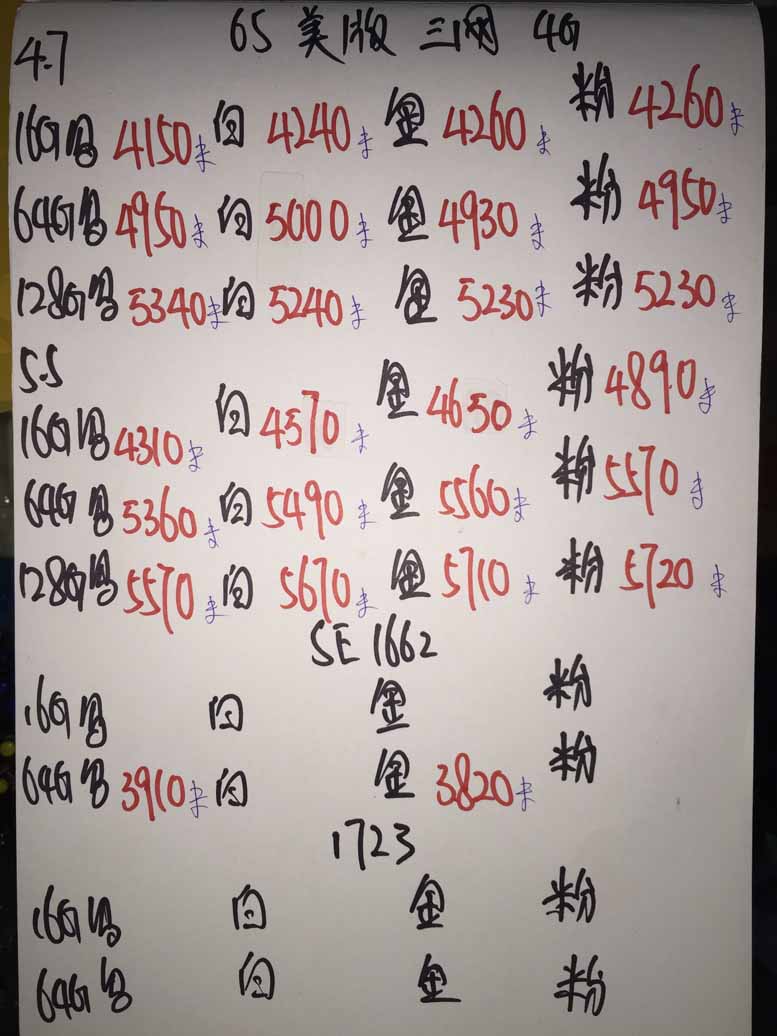 6S 美版 三网 4G
4.7
16G黑 4150 白 4240 金 4260 粉 4260
64G黑 4950 白 5000 金 4930 粉 4950
128G黑 5340 白 5240 金 5230 粉 5230
5.5
16G黑 4310 白 4570 金 4650 粉 4890
64G黑 5360 白 5490 金 5560 粉 5570
128G黑 5570 白 5670 金 5710 粉 5720
SE 1662
16G黑 白 金 粉
64G黑 3910 白 金 3820 粉
1723
16G黑 白 金 粉
64G黑 白 金 粉